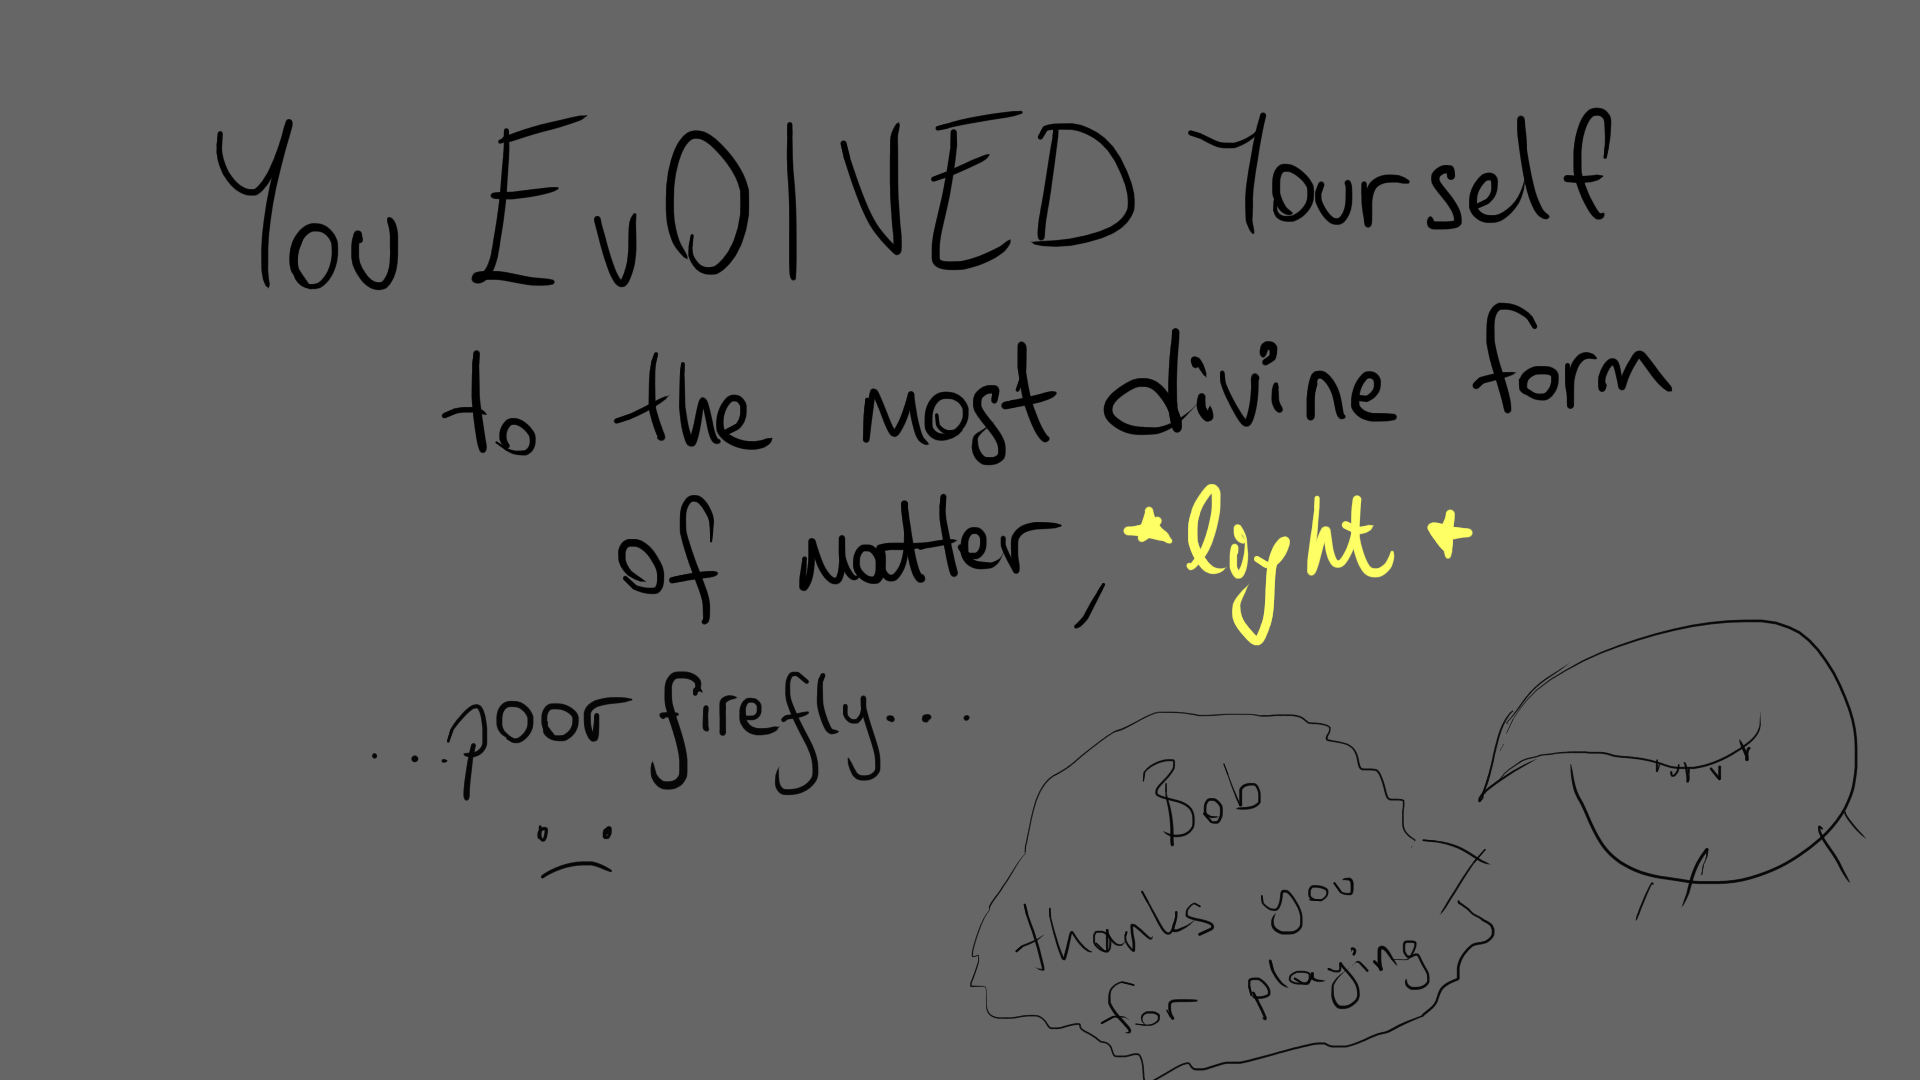 You EvOlVED Yourself
to the most divine form
of matter, *light*
...poor firefly...
:(
Bob
thanks you
for playing